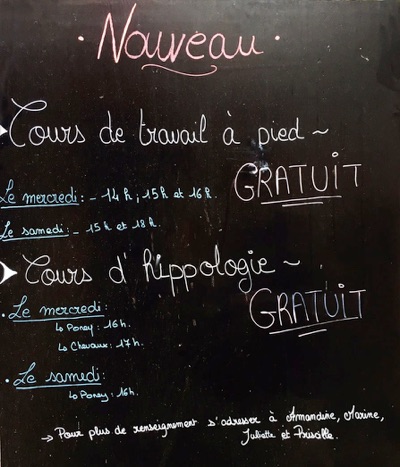 · Nouveau ·
Cours de travail à pied ~
GRATUIT
Le mercredi: - 14h ; 15h et 16h.
Le samedi: - 15h et 18h.
Cours d'hippologie ~
GRATUIT
· Le mercredi:
↳ Poney : 16h.
↳ Chevaux : 17h.
· Le samedi:
↳ Poney : 16h.
→ Pour plus de renseignement s'adresser à Amandine, Marine,
Juliette et Prisille.